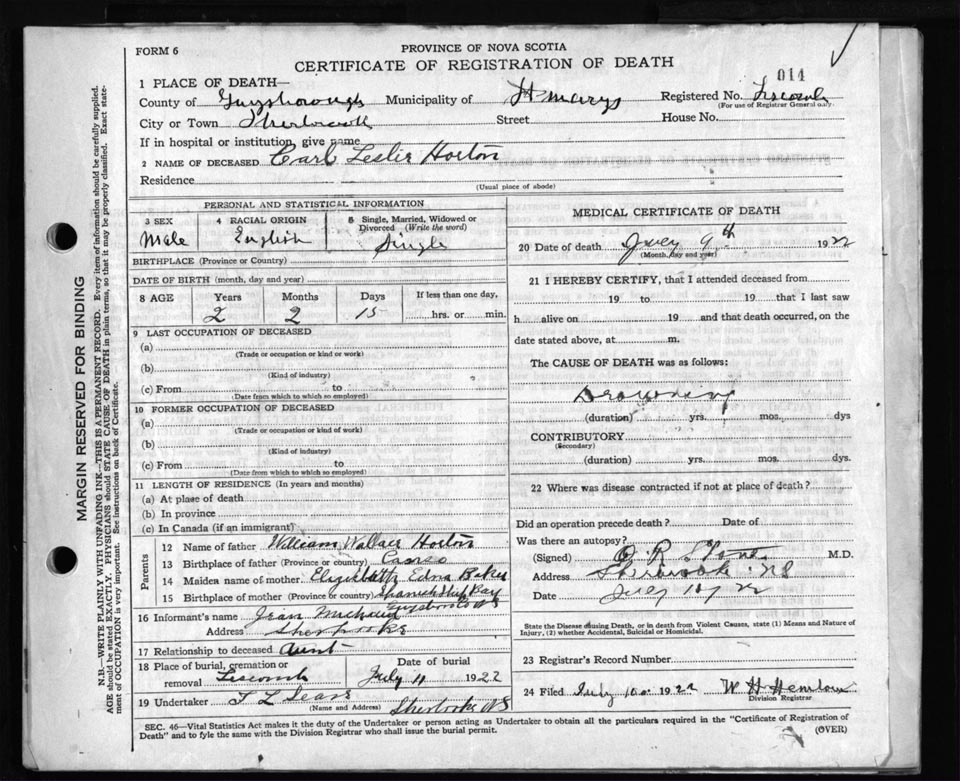 FORM 6
PROVINCE OF NOVA SCOTIA
CERTIFICATE OF REGISTRATION OF DEATH
014
1 PLACE OF DEATH—
County of Guysborough Municipality of St marys Registered No. Liscomb
(For use of Registrar General only.
City or Town Sherbrook Street House No.
If in hospital or institution, give name
2 NAME OF DECEASED Carl Leslie Horton
Residence
(Usual place of abode)
PERSONAL AND STATISTICAL INFORMATION
3 SEX 4 RACIAL ORIGIN 5 Single, Married, Widowed or Divorced (Write the word)
Male English Single
BIRTHPLACE (Province or Country)
DATE OF BIRTH (month, day and year)
8 AGE Years Months Days If less than one day,
2 2 15 hrs. or min.
9 LAST OCCUPATION OF DECEASED
(a)
(Trade or occupation or kind or work)
(b)
(Kind of industry)
(c) From to
(Date from which to which so employed)
10 FORMER OCCUPATION OF DECEASED
(a)
(Trade or occupation or kind of work)
(b)
(Kind of industry)
(c) From to
(Date from which to which so employed)
11 LENGTH OF RESIDENCE (In years and months)
(a) At place of death
(b) In province
(c) In Canada (if an immigrant)
Parents
12 Name of father William Wallace Horton
13 Birthplace of father (Province or country) Canso
14 Maiden name of mother Elizabeth Edna Baker
15 Birthplace of mother (Province or country) Spanish Ship Bay
Guysboro Co NS
16 Informant's name Jean
Address Sherbrooke
17 Relationship to deceased Aunt
18 Place of burial, cremation or removal Liscomb Date of burial July 11 1922
19 Undertaker T L Sears Sherbrooke NS
(Name and Address)
MEDICAL CERTIFICATE OF DEATH
20 Date of death July 9th 1922
(Month, day and year)
21 I HEREBY CERTIFY, that I attended deceased from
19 to 19 that I last saw
h alive on 19 and that death occurred, on the
date stated above, at m.
The CAUSE OF DEATH was as follows:
Drowning
(duration) yrs. mos. dys
CONTRIBUTORY
(Secondary)
(duration) yrs. mos. dys.
22 Where was disease contracted if not at place of death?
Did an operation precede death? Date of
Was there an autopsy?
(Signed) M.D.
Address Sherbrook NS
Date July 10/22
State the Disease causing Death, or in death from Violent Causes, state (1) Means and Nature of
Injury, (2) whether Accidental, Suicidal or Homicidal.
23 Registrar's Record Number
24 Filed July 10 1922 W H
Division Registrar
SEC. 46—Vital Statistics Act makes it the duty of the Undertaker or person acting as Undertaker to obtain all the particulars required in the "Certificate of Registration of
Death" and to fyle the same with the Division Registrar who shall issue the burial permit.
(OVER)
MARGIN RESERVED FOR BINDING
N.B.—WRITE PLAINLY WITH UNFADING INK—THIS IS A PERMANENT RECORD. Every item of information should be carefully supplied.
AGE should be stated EXACTLY. PHYSICIANS should STATE CAUSE OF DEATH in plain terms, so that it may be properly classified. Exact statement of OCCUPATION is very important. See instructions on back of Certificate.